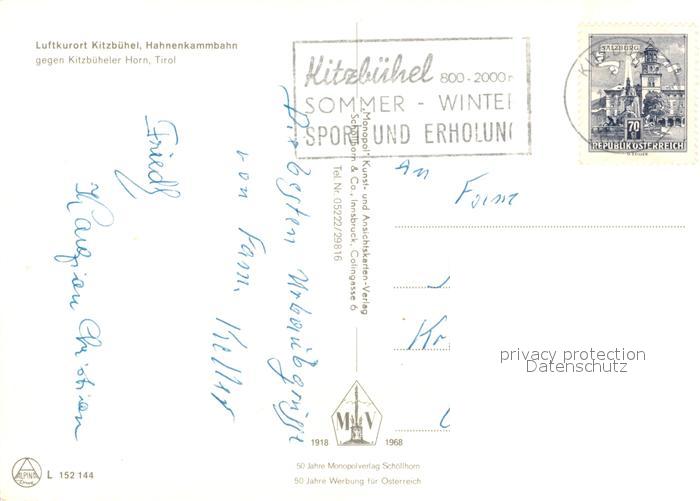 Luftkurort Kitzbühel, Hahnenkammbahn
gegen Kitzbüheler Horn, Tirol
Kitzbühel 800-2000m
SOMMER - WINTER
SPORT UND ERHOLUNG
SALZBURG
70
REPUBLIK ÖSTERREICH
Die besten Urlaubsgrüße
von Fam. Keller
Friedl
Christian
„Monopol“ Kunst- und Ansichtskarten-Verlag
Schöllhorn & Co., Innsbruck, Colingasse 6
Tel. Nr. 05222/29816
An
Fam
Kr.
M V
1918 1968
50 Jahre Monopolverlag Schöllhorn
50 Jahre Werbung für Österreich
ALPINA
Druck
L 152 144
privacy protection
Datenschutz